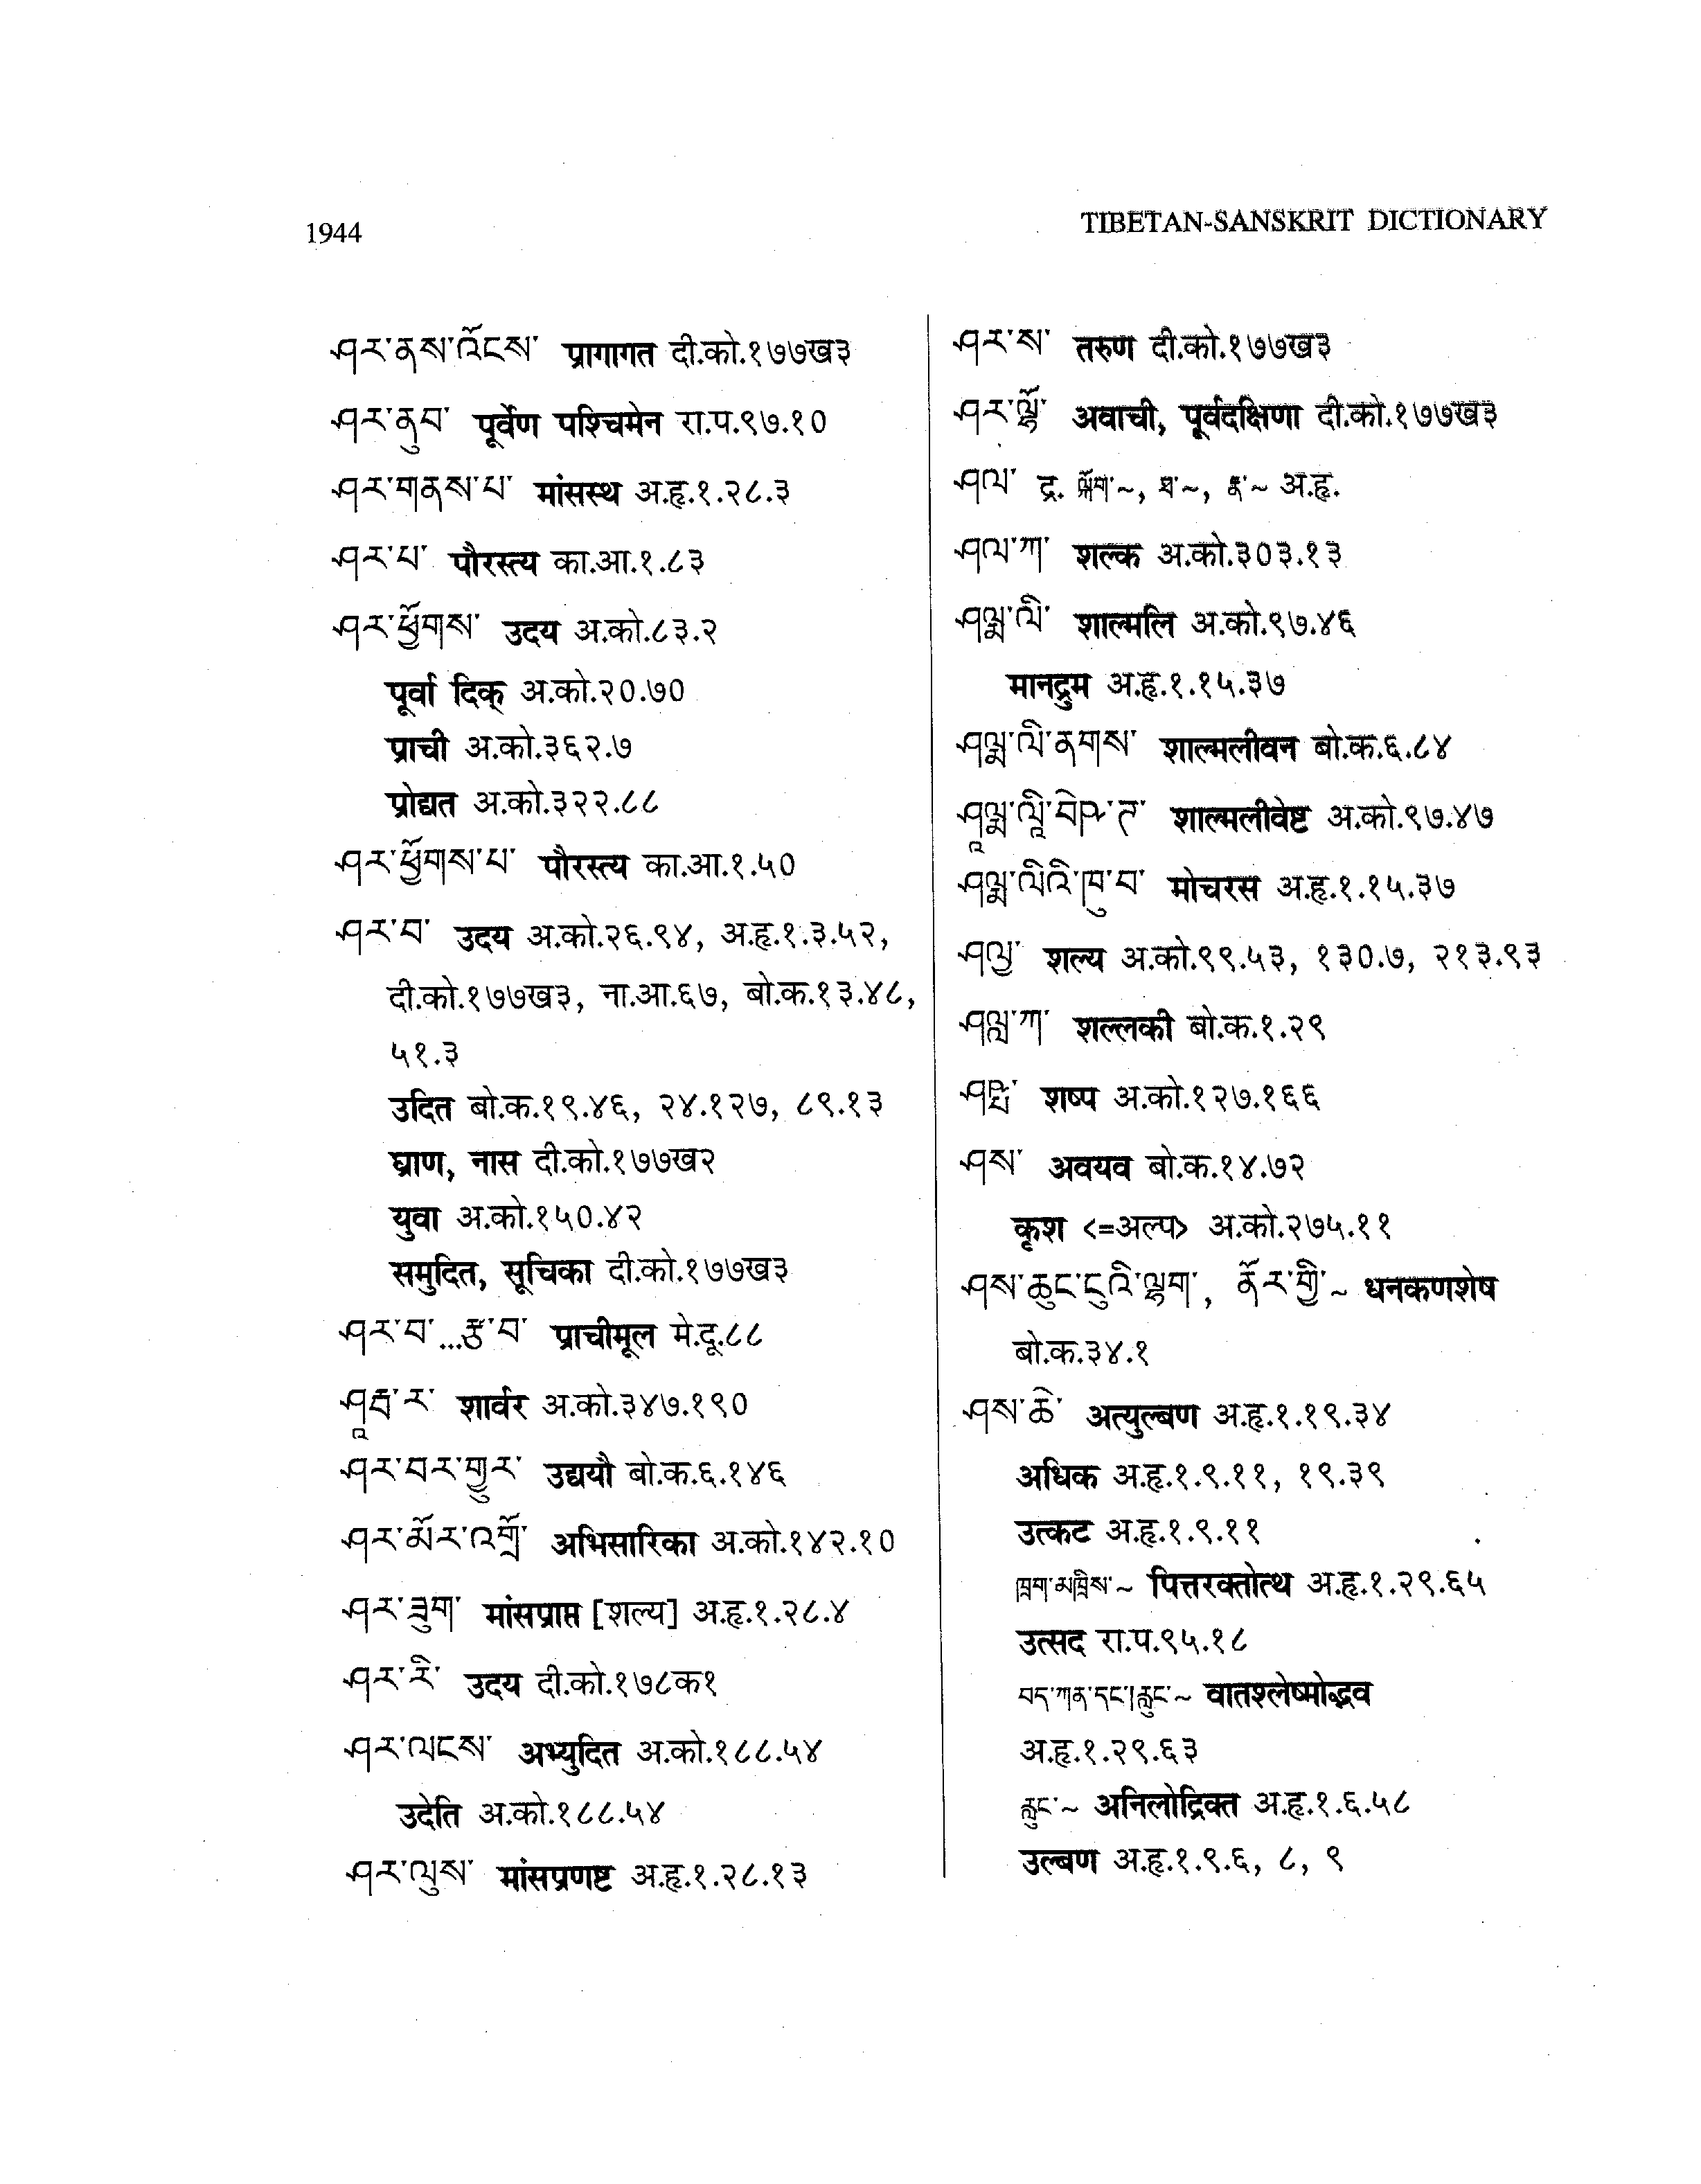 1944
TIBETAN-SANSKRIT DICTIONARY
ཤར་ནས་འོངས་ प्रागागत दी.को.१७७ख३
ཤར་ནུབ་ पूर्वेण पश्चिमेन रा.प.९७.१०
ཤར་གནས་པ་ मांसस्थ अ.हृ.१.२८.३
ཤར་པ་ पौरस्त्य का.आ.१.८३
ཤར་ཕྱོགས་ उदय अ.को.८३.२
पूर्वा दिक् अ.को.२०.७०
प्राची अ.को.३६२.७
प्रोद्यत अ.को.३२२.८८
ཤར་ཕྱོགས་པ་ पौरस्त्य का.आ.१.५०
ཤར་བ་ उदय अ.को.२६.९४, अ.हृ.१.३.५२,
दी.को.१७७ख३, ना.आ.६७, बो.क.१३.४८,
५१.३
उदित बो.क.१९.४६, २४.१२७, ८९.१३
घ्राण, नास दी.को.१७७ख२
युवा अ.को.१५०.४२
समुदित, सूचिका दी.को.१७७ख३
ཤར་བ་...རྩ་བ་ प्राचीमूल मे.दू.८८
ཤཱརྦ་ར་ शार्वर अ.को.३४७.१९०
ཤར་བར་གྱུར་ उद्ययौ बो.क.६.१४६
ཤར་མོར་འགྲོ་ अभिसारिका अ.को.१४२.१०
ཤར་ཟུག་ मांसप्राप्त [शल्य] अ.हृ.१.२८.४
ཤར་རི་ उदय दी.को.१७८क१
ཤར་ལངས་ अभ्युदित अ.को.१८८.५४
उदेति अ.को.१८८.५४
ཤར་ལུས་ मांसप्रणष्ट अ.हृ.१.२८.१३
ཤར་ས་ तरुण दी.को.१७७ख३
ཤར་ལྷོ་ अवाची, पूर्वदक्षिणा दी.को.१७७ख३
ཤལ་ द्र. ལྐོག་~, ཐ་~, རྣ་~ अ.हृ.
ཤལ་ཀ་ शल्क अ.को.३०३.१३
ཤལྨ་ལི་ शाल्मलि अ.को.९७.४६
मानद्रुम अ.हृ.१.१५.३७
ཤལྨ་ལི་ནགས་ शाल्मलीवन बो.क.६.८४
ཤཱལྨ་ལཱི་བེཥ་ཊ་ शाल्मलीवेष्ट अ.को.९७.४७
ཤལྨ་ལིའི་ཁུ་བ་ मोचरस अ.हृ.१.१५.३७
ཤལྱ་ शल्य अ.को.९९.५३, १३०.७, २१३.९३
ཤལླ་ཀ་ शल्लकी बो.क.१.२९
ཤཥྤ་ शष्प अ.को.१२७.१६६
ཤས་ अवयव बो.क.१४.७२
कृश <=अल्प> अ.को.२७५.११
ཤས་ཆུང་ངུའི་ལྷག་, ནོར་གྱི་~ धनकणशेष
बो.क.३४.१
ཤས་ཆེ་ अत्युल्बण अ.हृ.१.१९.३४
अधिक अ.हृ.१.९.११, १९.३९
उत्कट अ.हृ.१.९.११
ཁྲག་མཁྲིས་~ पित्तरक्तोत्थ अ.हृ.१.२९.६५
उत्सद रा.प.९५.१८
བད་ཀན་དང་།རླུང་~ वातश्लेष्मोद्भव
अ.हृ.१.२९.६३
རླུང་~ अनिलोद्रिक्त अ.हृ.१.६.५८
उल्बण अ.हृ.१.९.६, ८, ९